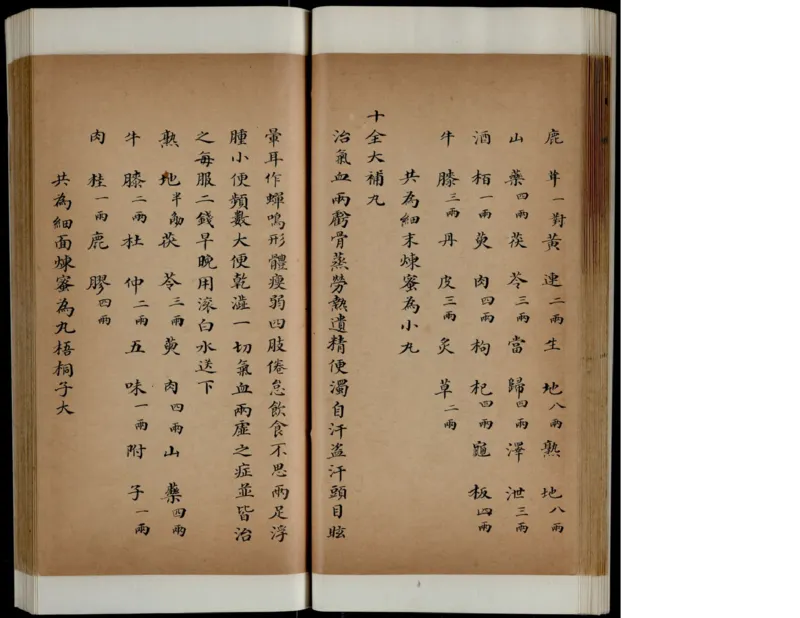 鹿茸一對黃連二兩生地八兩熟地八兩
山藥四兩茯苓三兩當歸四兩澤泄三兩
酒栢一兩萸肉四兩枸杞四兩龜板四兩
牛膝三兩丹皮三兩炙草二兩
共為細末煉蜜為小丸
十全大補丸
治氣血兩虧骨蒸勞熱遺精便濁自汗盜汗頭目眩
暈耳作蟬鳴形體瘦弱四肢倦怠飲食不思兩足浮
腫小便頻數大便乾澁一切氣血兩虛之症並皆治
之每服二錢早晚用滾白水送下
熟地半觔茯苓三兩萸肉四兩山藥四兩
牛膝二兩杜仲二兩五味一兩附子一兩
肉桂一兩鹿膠四兩
共為細面煉蜜為丸梧桐子大